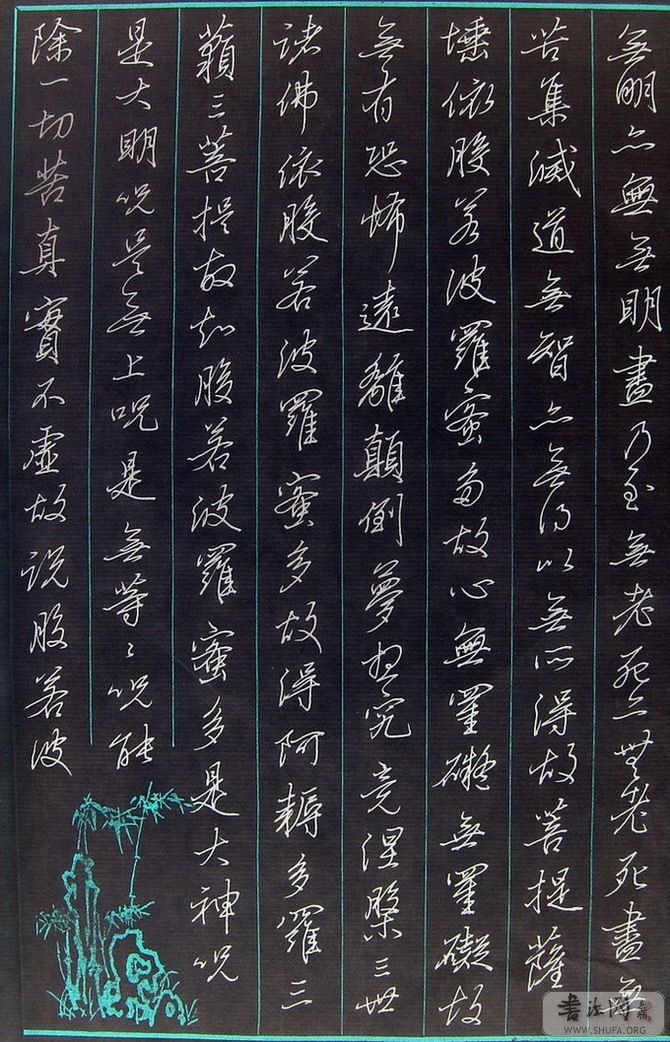 無明亦無無明盡乃至無老死亦無老死盡無
苦集滅道無智亦無得以無所得故菩提薩
埵依般若波羅蜜多故心無罣礙無罣礙故
無有恐怖遠離顛倒夢想究竟涅槃三世
諸佛依般若波羅蜜多故得阿耨多羅三
藐三菩提故知般若波羅蜜多是大神咒
是大明咒是無上咒是無等々咒能
除一切苦真實不虛故说般若波
書法網
WWW.SHUFA.ORG